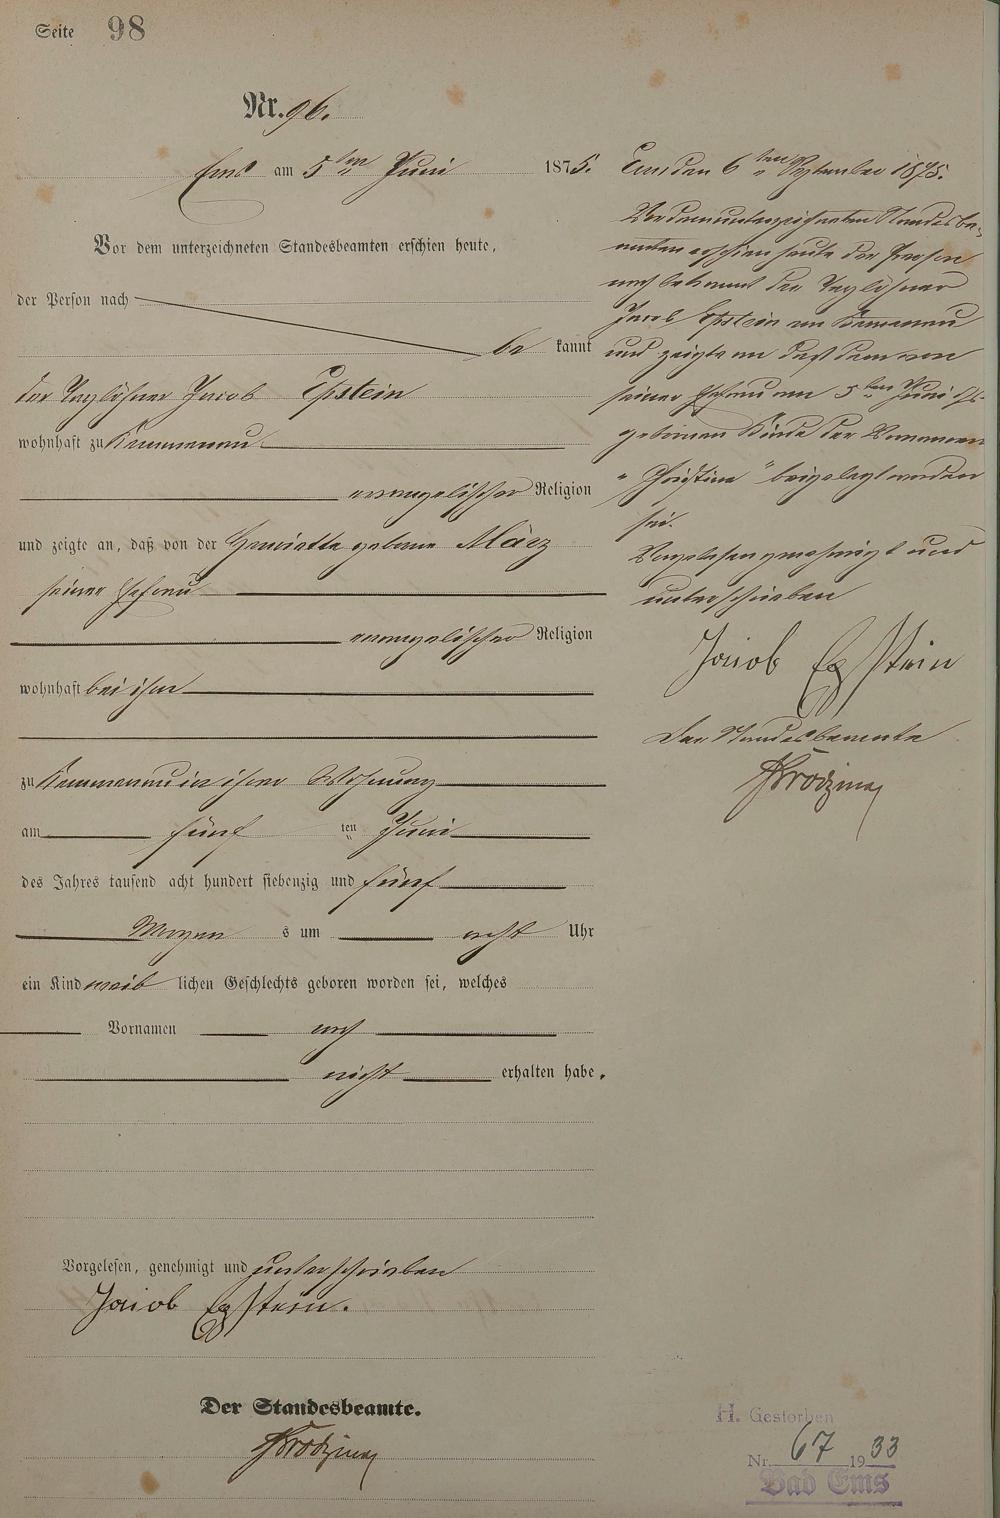 Seite 98
Nr. 96.
Ems am 5ten Juni 1875.
Vor dem unterzeichneten Standesbeamten erschien heute,
der Person nach
bekannt
der Taglöhner Jacob Epstein
wohnhaft zu Kemmenau
evangelischer Religion
und zeigte an, daß von der Henriette geborne März
seiner Ehefrau
evangelischer Religion
wohnhaft bei ihm
zu Kemmenau in ihrer Wohnung
am fünf ten Juni
des Jahres tausend acht hundert siebenzig und fünf
Morgens um acht Uhr
ein Kind weiblichen Geschlechts geboren worden sei, welches
Vornamen noch
nicht erhalten habe.
Vorgelesen, genehmigt und unterschrieben
Jacob Epstein.
Der Standesbeamte.
Ems den 6ten September 1875.
Vor dem unterzeichneten Standesbe-
amten erschien heute der Person
nach bekannt der Taglöhner
Jacob Epstein aus Kemmenau
und zeigte an daß dem von
seiner Ehefrau am 5ten Juni
gebornen Kinde der Vornamen
"Christine" beigelegt worden
sei.
Vorgelesen genehmigt und
unterschrieben
Jacob Epstein
Der Standesbeamte
H. Gestorben
Nr. 67 1933
Bad Ems